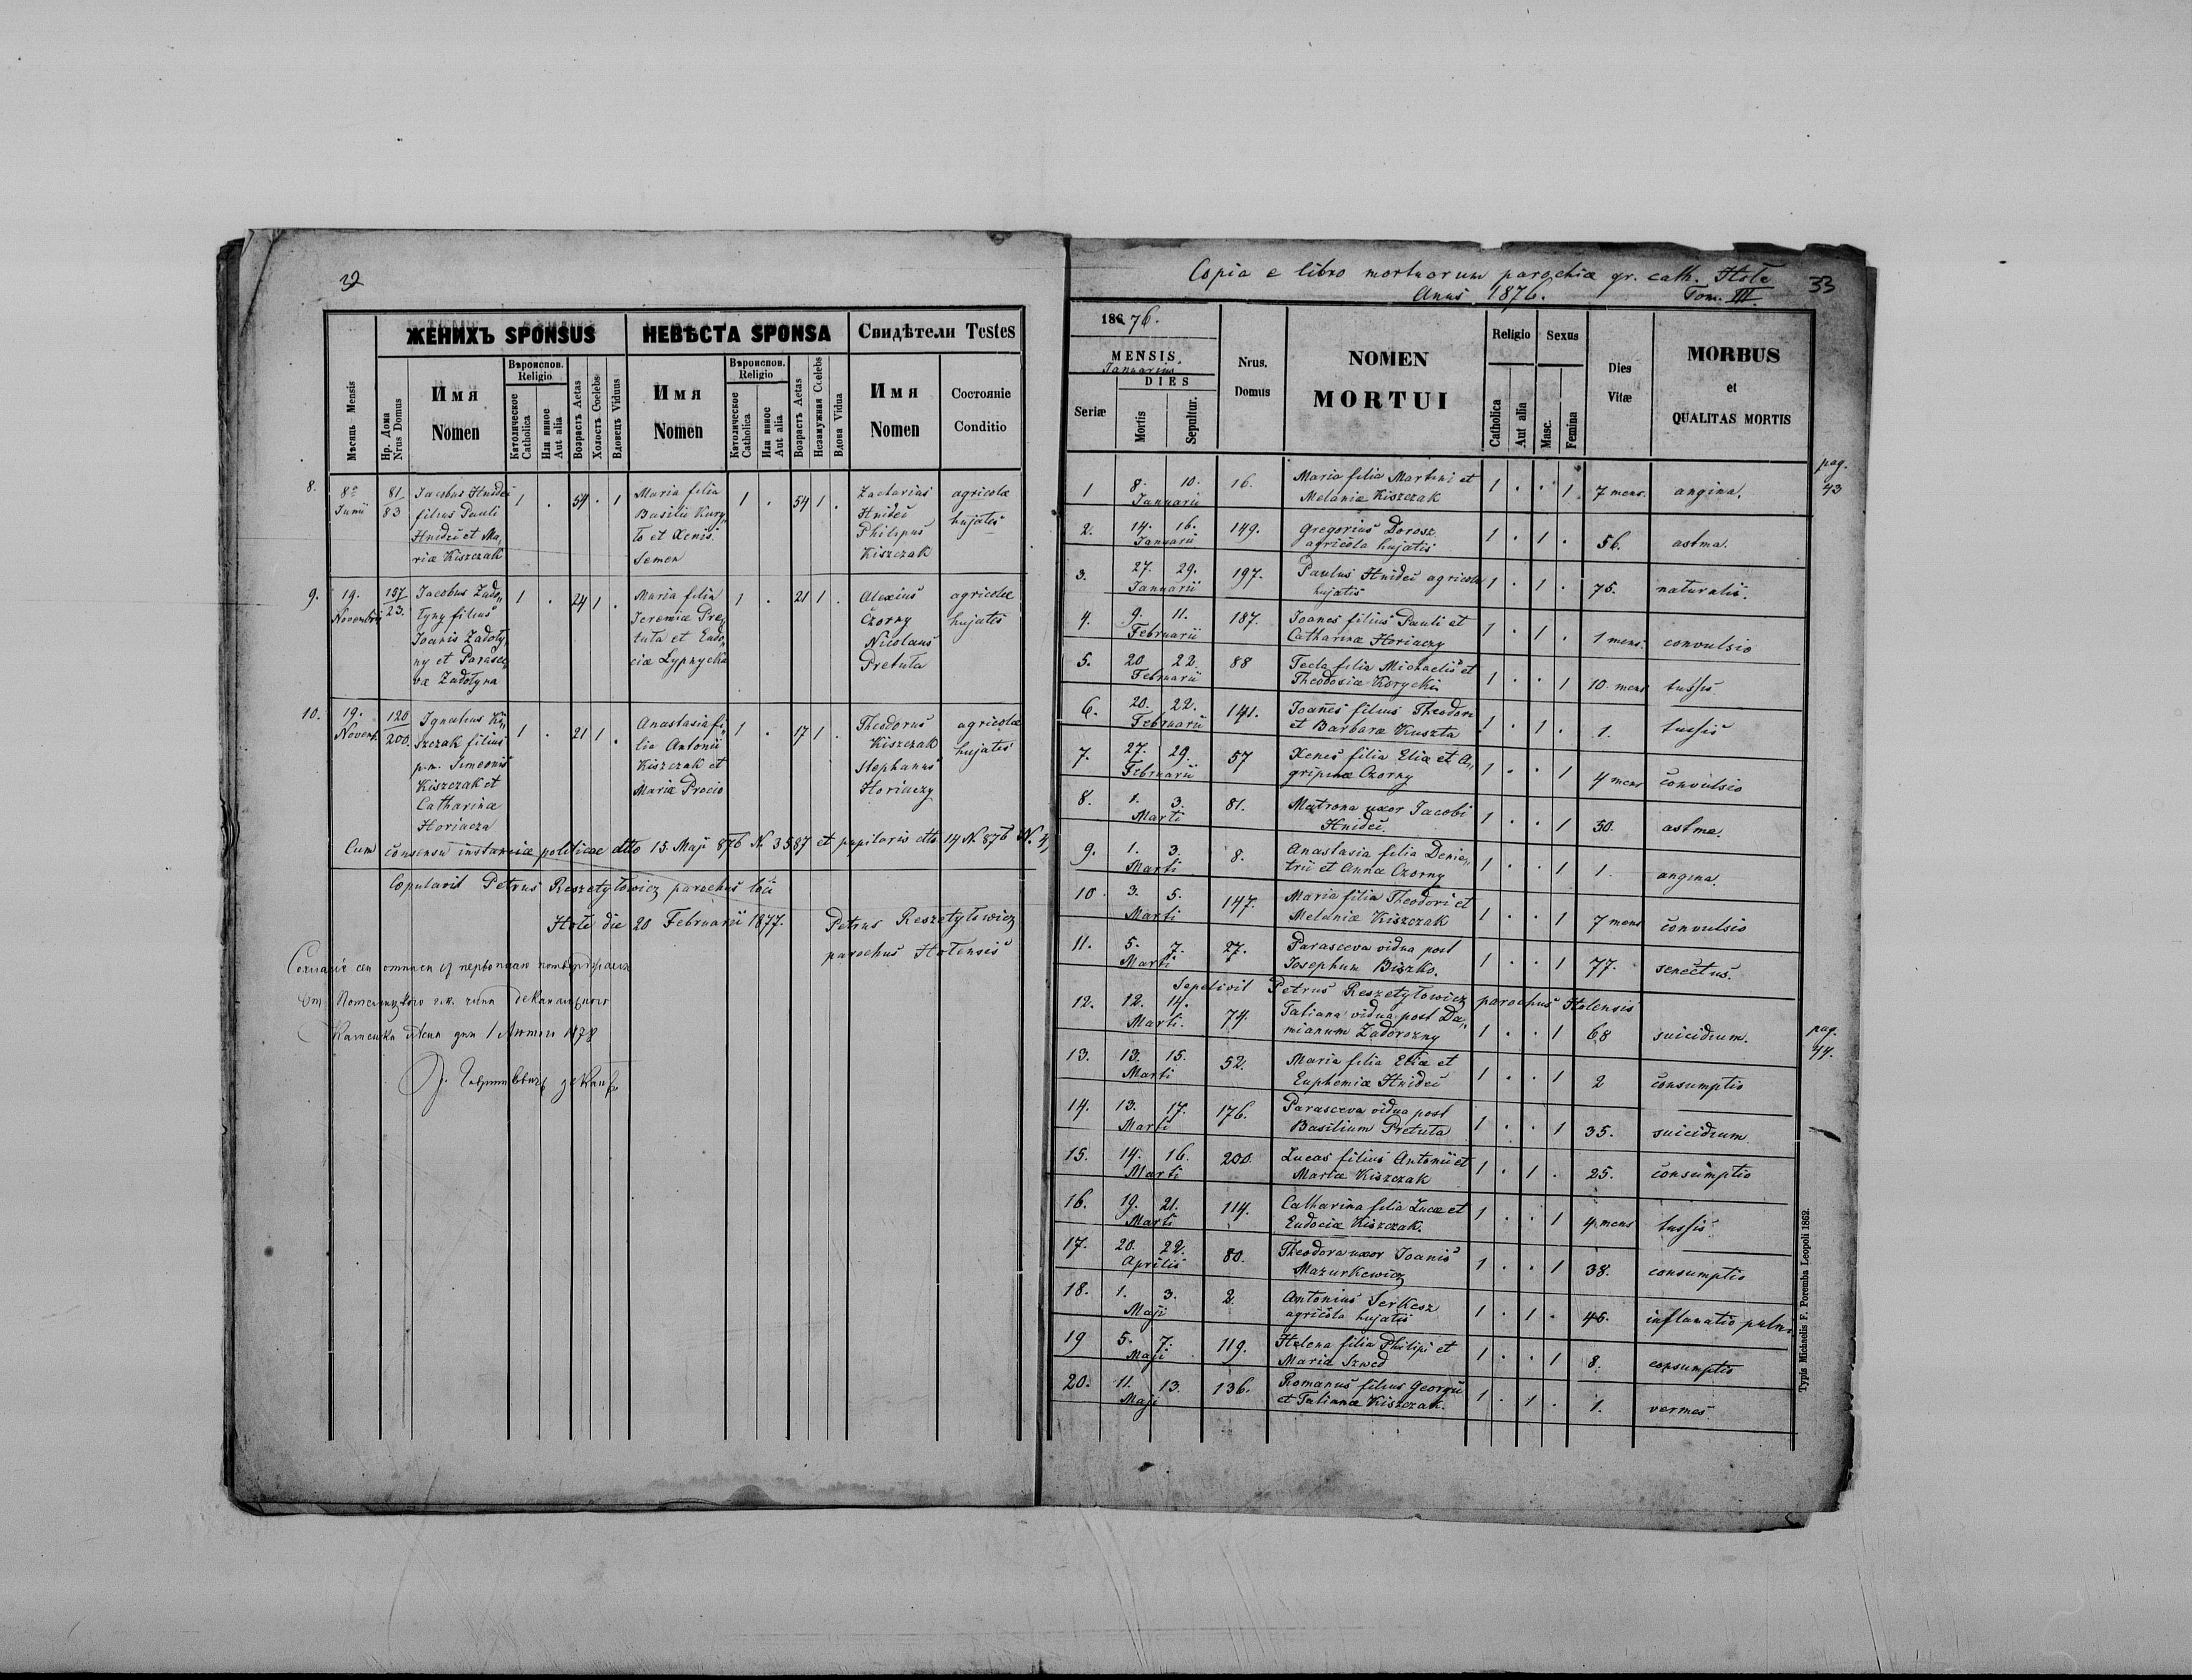 32
ЖЕНИХЪ SPONSUS
НЕВѢСТА SPONSA
Свидѣтели Testes
Мѣсяць Mensis
Нр. Дома
Nrus Domus
Имя
Nomen
Вѣроиспов.
Religio
Католическое
Catholica
Или инное
Aut alia
Возрастъ Aetas
Холостъ Coelebs
Вдовець Vidus
Имя
Nomen
Вѣроиспов.
Religio
Католическое
Catholica
Или инное
Aut alia
Возрастъ Aetas
Незамужная Coelebs
Вдова Vidua
Имя
Nomen
Состояніе
Conditio
8. 8a 81 Jacobus Hnidei 1 . 54 . 1 Maria filia 1 . 54 1 . Zacharias agricolæ
Junii 83 filius Pauli Basilii Kury„ Hnidei hujatis
Hnidei et Ma„ to et Xenis. Philipus
riæ Kiszczak Semen Kiszczak
9. 19. 157 Jacobus Zado„ 1 . 24 1 . Maria filia 1 . 21 1 . Alexius agricolæ
Novembris 23. tyny filius Jeremiæ Pre„ Czorny hujates
Joanis Zadoty„ tuta et Eudo„ Nicolaus
ny et Parasce„ ciæ Lypnycka Pretuta
væ Zadotyna
10. 19. 120 Ignatius Ki„ 1 . 21 1 . Anastasia fi„ 1 . 17 1 . Theodorus agricolæ
Novemb. 200. szczak filius lia Antonii Kiszczak hujates
p.m. Simeonis Kiszczak et Stephanus
Kiszczak et Mariæ Procio Horiaczy
Catharinæ
Horiacza
Cum consensu instanciæ politicae dtto 15. Maji 876 N. 3587 et pupilaris dtto 14 N. 876 N. 4)
Copulavit Petrus Reszetyłowicz parochus loci
Hole die 20 Februarii 1877. Petrus Reszetyłowicz
parochus Holensis
дня 1 1878
pag.
43
Copia e libro mortuorum parochiæ gr. cath. Hole 33
Anus 1876. Tom. III.
186 76.
MENSIS
Januarius
DIES
Seriæ
Mortis
Sepultur.
Nrus.
Domus
NOMEN
MORTUI
Religio
Catholica
Aut alia
Sexus
Masc.
Femina
Dies
Vitæ
MORBUS
et
QUALITAS MORTIS
1 8. 10. 16. Maria filia Martini et 1 . . 1 7 mens. angina.
Januarii Melaniæ Kiszczak
2. 14. 16. 149. Gregorius Dorosz 1 . 1 . 56. astma.
Januarii agricola hujatis
3. 27. 29. 197. Paulus Hnidei agricola 1 . 1 . 75. naturalis.
Januarii hujatis
4. 9. 11. 187. Joanes filius Pauli et 1 . 1 . 1 mens. convulsio
Februarii Catharinæ Horiaczy
5. 20 22. 88 Tecla filia Michaelis et 1 . . 1 10 mens tussis
Februarii Theodosiæ Korycki
6. 20. 22. 141. Joanes filius Theodori 1 . 1 . 1. tussis
Februarii et Barbaræ Kuszta
7. 27. 29. 57 Xenes filia Eliæ et A„ 1 . . 1 4 mens convulsio
Februarii gripinæ Czorny
8. 1. 3. 81. Matrona uxor Jacobi 1 . . 1 50. astma.
Marti Hnidei.
9. 1. 3. 8. Anastasia filia Deme„ 1 . . 1 1. angina.
Marti trii et Annæ Czorny
10 3. 5. 147. Maria filia Theodori et 1 . . 1 7 mens convulsio
Marti Melaniæ Kiszczak
11. 5. 7. 27. Parasceva vidua post 1 . . 1 77. senectus.
Marti Josephum Biszko.
Sepelivit Petrus Reszetyłowicz parochus Holensis
12. 12. 14. 74. Tatiana vidua post Da„ 1 . . 1 68 suicidium. pag.
Marti. mianum Zadorozny 44.
13. 13. 15. 52. Maria filia Eliæ et 1 . . 1 2 consumptio
Marti Euphemiæ Hnidei
14. 13. 17. 176. Parasceva vidua post 1 . . 1 35. suicidium
Marti Basilium Pretuta
15. 14. 16. 200. Lucas filius Antonii et 1 . 1 . 25. consumptio
Marti Mariæ Kiszczak
16. 19. 21. 114. Catharina filia Lucæ et 1 . . 1 4 mens tussis
Marti Eudociæ Kiszczak.
17. 20. 22. 80. Theodora uxor Joanis 1 . . 1 38. consumptio
Aprilis Mazurkewicz
18. 1. 3. 2. Antonius Serkesz 1 . 1 . 46. inflamatio pulm.
Maji agricola hujatis
19 5. 7. 119. Helena filia Philipi et 1 . . 1 8. consumptio
Maji Maria Szwed
20. 11. 13. 136. Romanus filius Georgii 1 . 1 . 1. vermes.
Maji et Tatianæ Kiszczak.
Typis Michaelis F. Poremba Leopoli 1862.